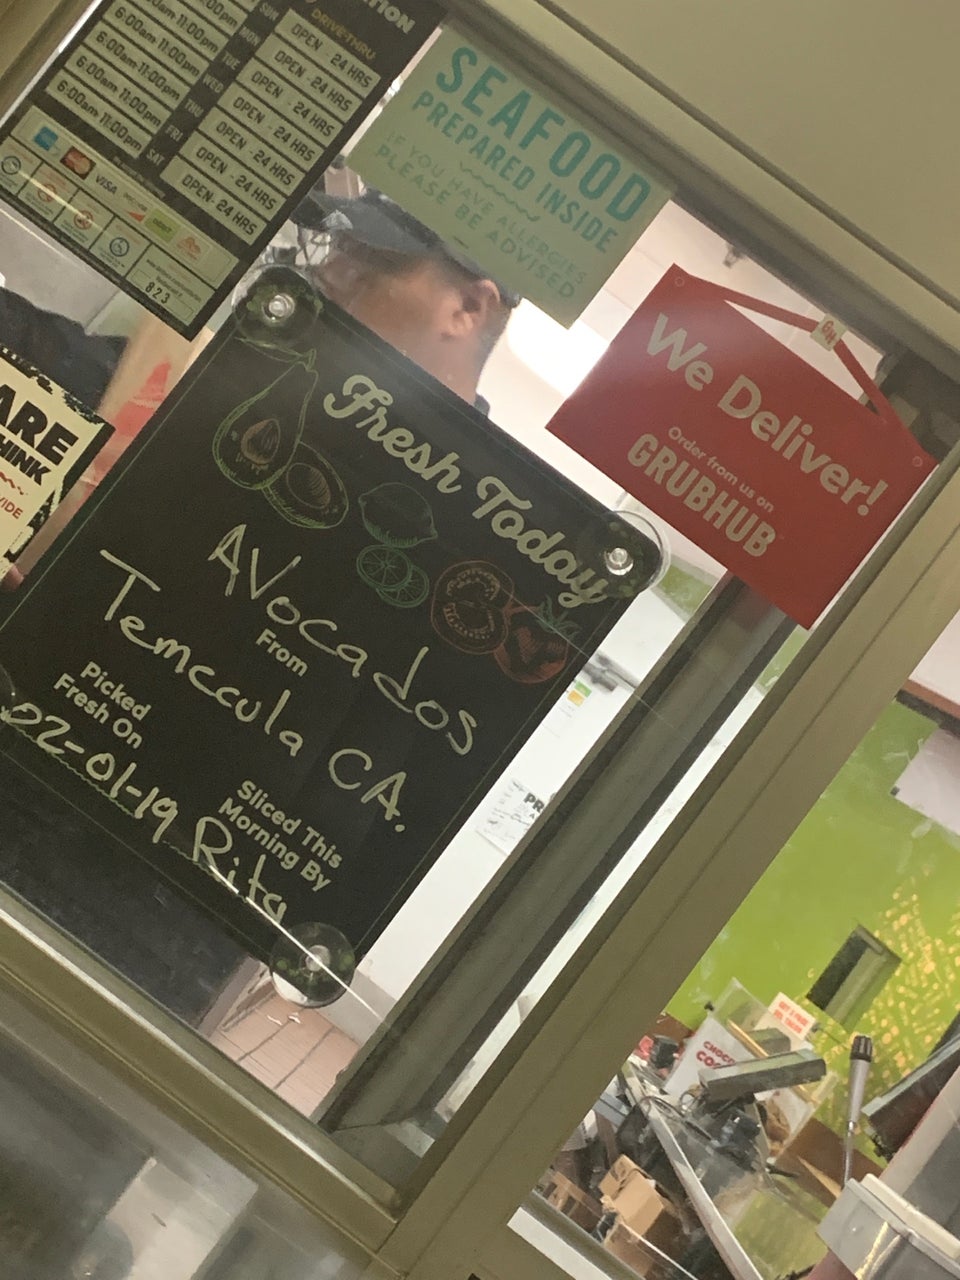 DRIVE-THRU
SUN
OPEN - 24 HRS
6:00am-11:00pm
MON
OPEN - 24 HRS
6:00am-11:00pm
TUE
OPEN - 24 HRS
6:00am-11:00pm
WED
OPEN - 24 HRS
6:00am-11:00pm
THU
OPEN - 24 HRS
6:00am-11:00pm
FRI
OPEN - 24 HRS
6:00am-11:00pm
SAT
OPEN - 24 HRS
VISA
DEBIT
823
SEAFOOD
PREPARED INSIDE
IF YOU HAVE ALLERGIES
PLEASE BE ADVISED
GH
We Deliver!
Order from us on
GRUBHUB
ARE
HINK
IDE
Fresh Today
AVocados
From
Temccula CA.
Picked
Fresh On
02-01-19
Sliced This
Morning By
Rita
PR
CHOC
CO